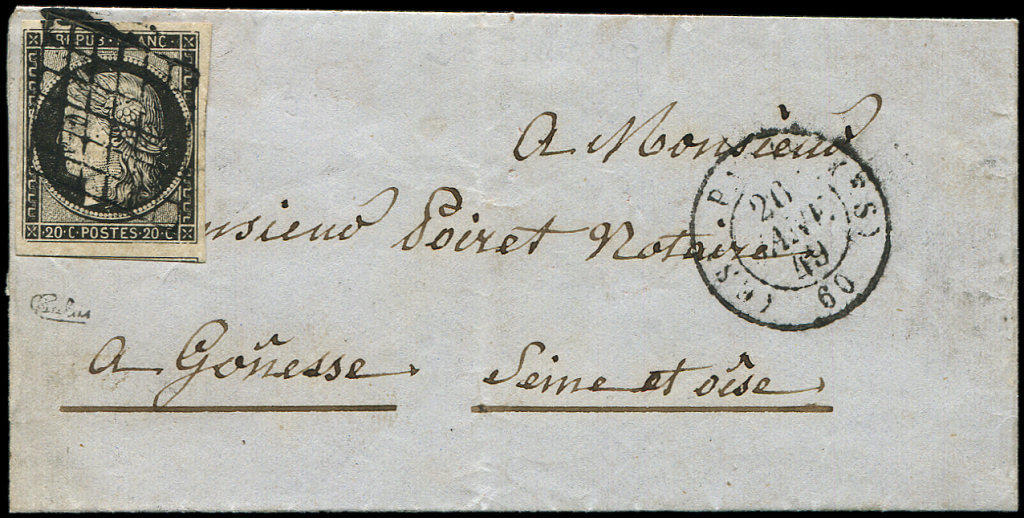 REPUB. FRANC.
20·C·POSTES·20·C
A Monsieur
nsieur Poiret Notaire
A Gonesse. Seine et oise.
26
JANV.
49
60
Calves